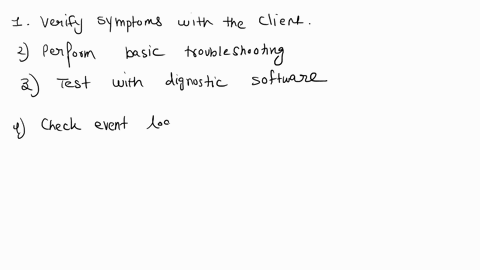 1. Verify symptoms with the client.
2) Perform basic troubleshooting
3) Test with dignostic software
4) Check event loo